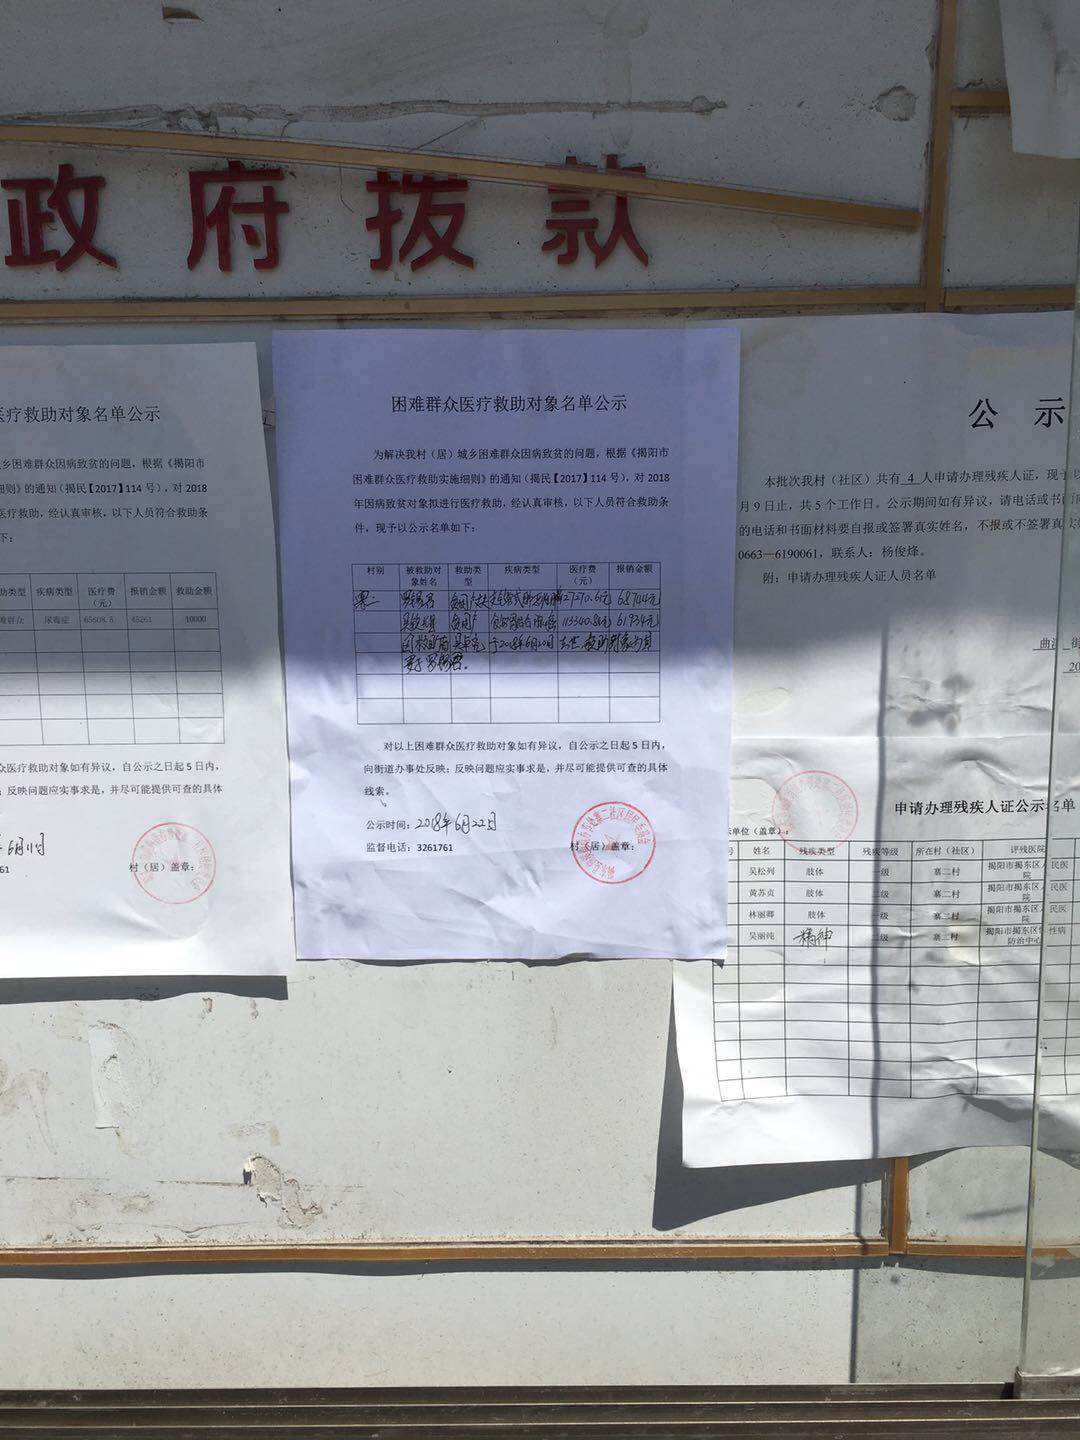 政府拨款
医疗救助对象名单公示
乡困难群众因病致贫的问题，根据《揭阳市
细则》的通知（揭民【2017】114 号），对 2018
医疗救助，经认真审核，以下人员符合救助条
下：
疾病类型 医疗费（元） 报销金额 救助金额
难群众 尿毒症 65608.5 45261 10000
众医疗救助对象如有异议，自公示之日起 5 日内，
；反映问题应实事求是，并尽可能提供可查的具体
村（居）盖章：
761
困难群众医疗救助对象名单公示
为解决我村（居）城乡困难群众因病致贫的问题，根据《揭阳市
困难群众医疗救助实施细则》的通知（揭民【2017】114 号），对 2018
年因病致贫对象拟进行医疗救助，经认真审核，以下人员符合救助条
件，现予以公示名单如下：
村别 被救助对象姓名 救助类型 疾病类型 医疗费（元） 报销金额
寨二 贫困户 127270.6元 68744元
贫困户 113340.86元 61934元
于2018年6月20日
对以上困难群众医疗救助对象如有异议，自公示之日起 5 日内，
向街道办事处反映；反映问题应实事求是，并尽可能提供可查的具体
线索。
公示时间：2018年6月22日
监督电话：3261761 村（居）盖章：
公 示
本批次我村（社区）共有 4 人申请办理残疾人证，现予以
月 9 日止，共 5 个工作日。公示期间如有异议，请电话或书面
的电话和书面材料要自报或签署真实姓名，不报或不签署真实
0663—6190061，联系人：杨俊烽。
附：申请办理残疾人证人员名单
街
20
申请办理残疾人证公示名单
单位（盖章）：
号 姓名 残疾类型 残疾等级 所在村（社区） 评残医院
吴松列 肢体 一级 寨二村 揭阳市揭东区人民医院
黄苏贞 肢体 二级 寨二村 揭阳市揭东区人民医院
林丽卿 肢体 一级 寨二村 揭阳市揭东区人民医院
吴丽纯 精神 二级 寨二村 揭阳市揭东区慢性病防治中心